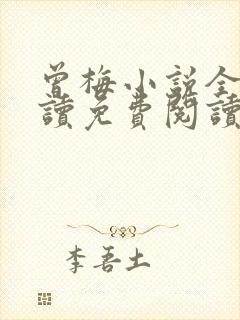 曾梅小説全
讀免費閱讀
李吾土